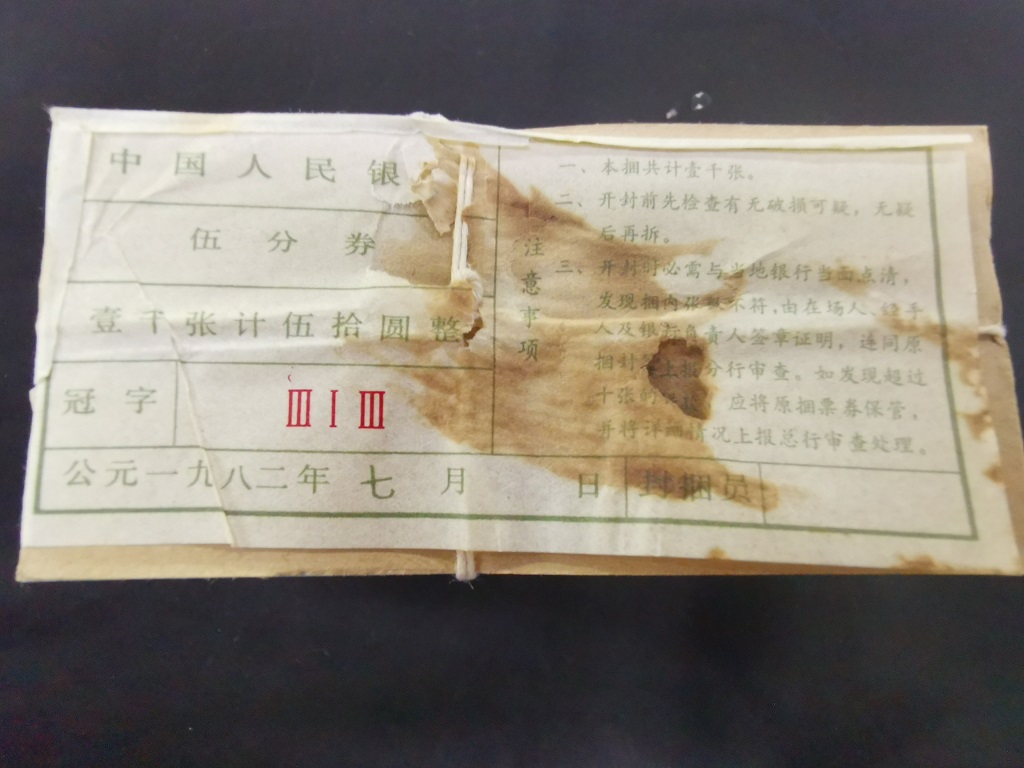 中国人民银
伍分券
壹千张计伍拾圆整
冠字 Ⅲ Ⅰ Ⅲ
公元一九八二年七月 日 封捆员
注意事项
一、本捆共计壹千张。
二、开封前先检查有无破损可疑，无疑
后再拆。
三、开封时必需与当地银行当面点清，
发现捆内张数不符，由在场人、经手
人及银行负责人签章证明，连同原
捆封签上报分行审查。如发现超过
十张的 应将原捆票券保管，
并将详细情况上报总行审查处理。